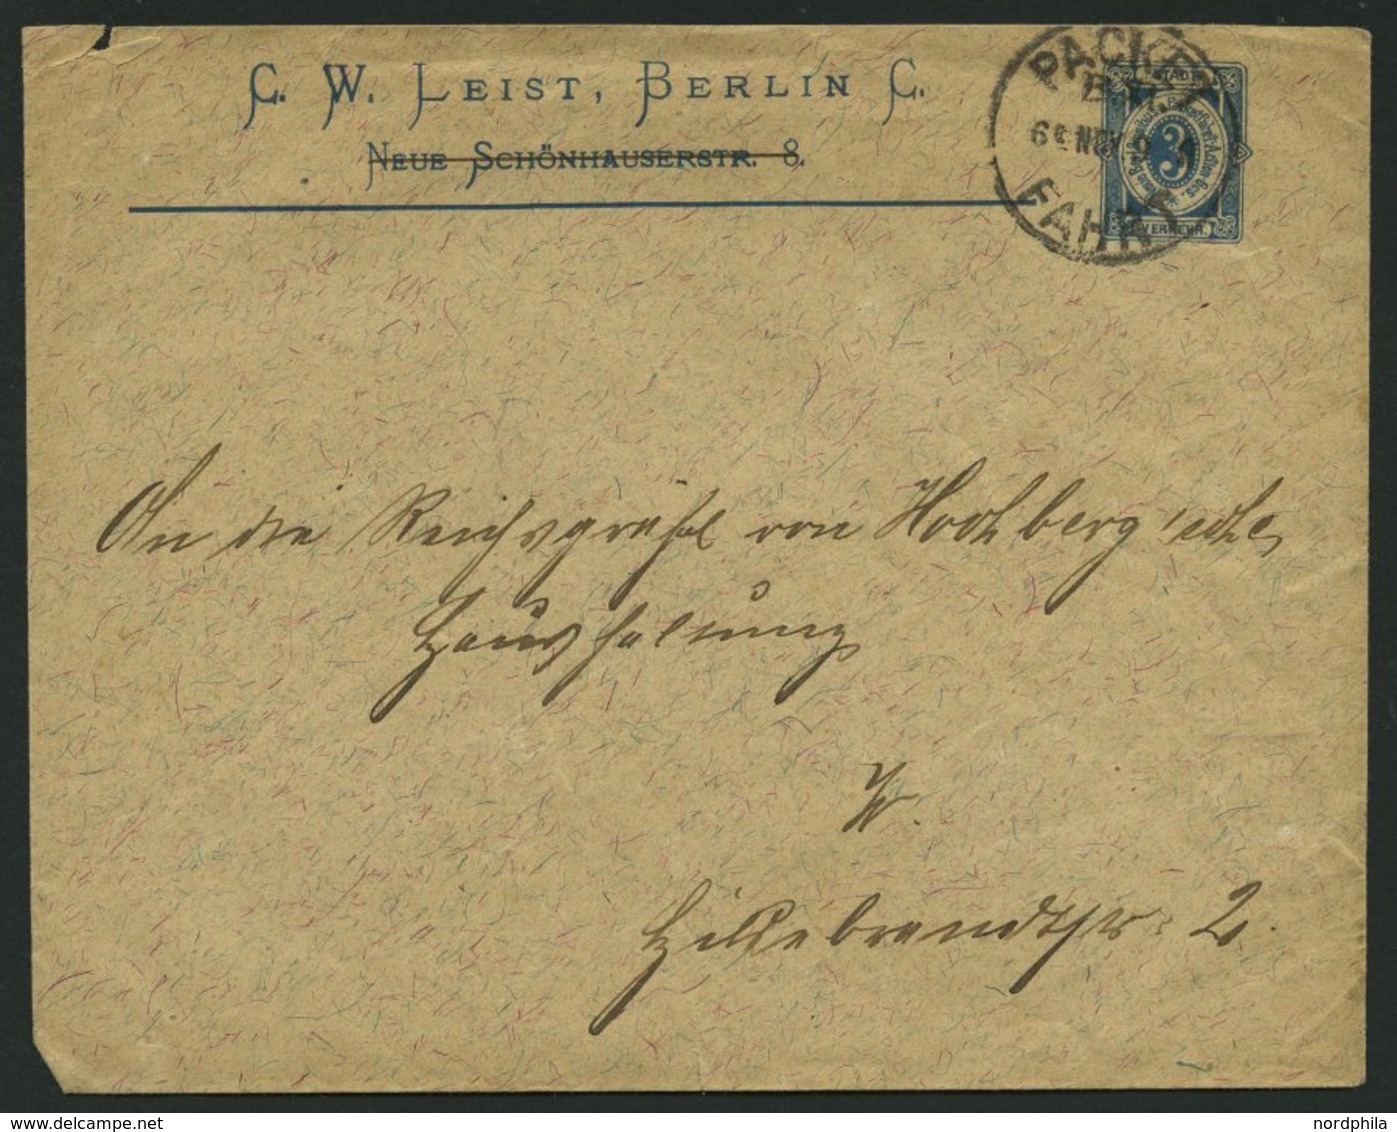 C. W. Leist, Berlin C.
Neue Schönhauserstr. 8.
PACKET
FAHRT
NOV
STADT
3
VERKEHR.
An die Reichsgräfl von Hochberg'sche
Haushaltung
W.
Hildebrandtstr. 2.
nordphila